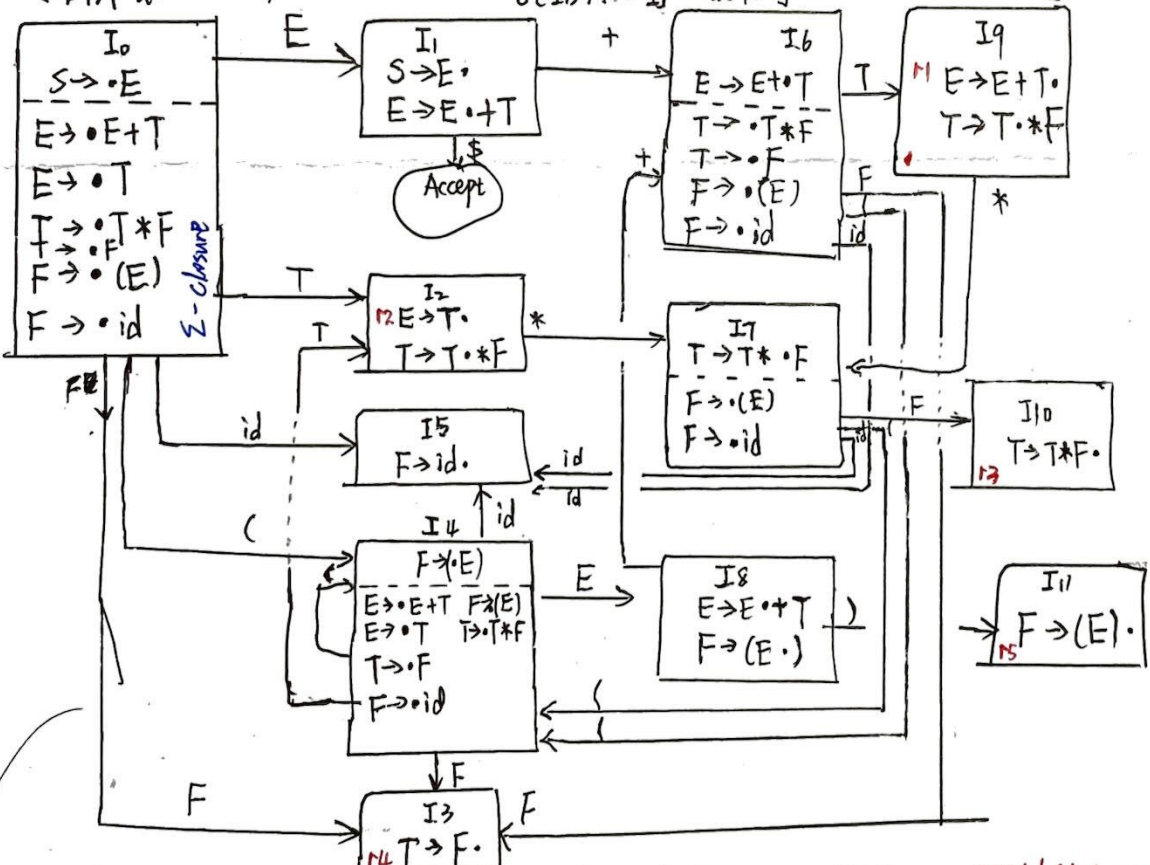 I0
S→·E
E→·E+T
E→·T
T→·T*F
T→·F
F→·(E)
F→·id
Σ-closure
E
I1
S→E·
E→E·+T
$
Accept
+
I6
E→E+·T
T→·T*F
T→·F
F→·(E)
F→·id
T
I9
r1 E→E+T·
T→T·*F
*
+
F
(
id
T
I2
r2 E→T·
T→T·*F
*
T
I7
T→T*·F
F→·(E)
F→·id
F
id
(
I10
T→T*F·
r3
F
id
I5
F→id·
id
id
id
(
I4
F→(·E)
E→·E+T F→·(E)
E→·T T→·T*F
T→·F
F→·id
(
E
I8
E→E·+T
F→(E·)
)
I11
F→(E)·
r5
(
(
F
F
I3
r4 T→F·
F